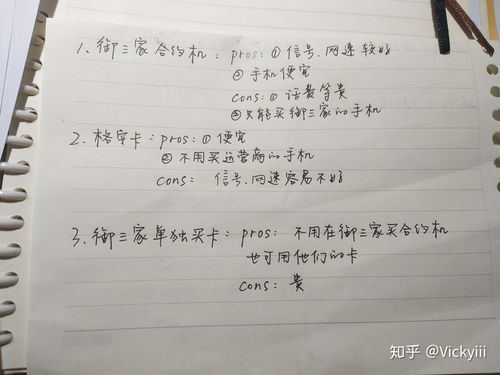 1、御三家合约机：pros：① 信号、网速较好
② 手机便宜
cons：① 话费等贵
② 只能买御三家的手机
2、格安卡：pros：① 便宜
② 不用买运营商的手机
cons： 信号、网速容易不好
3、御三家单独买卡：pros： 不用在御三家买合约机
也可用他们的卡
cons： 贵
知乎 @Vickyiii